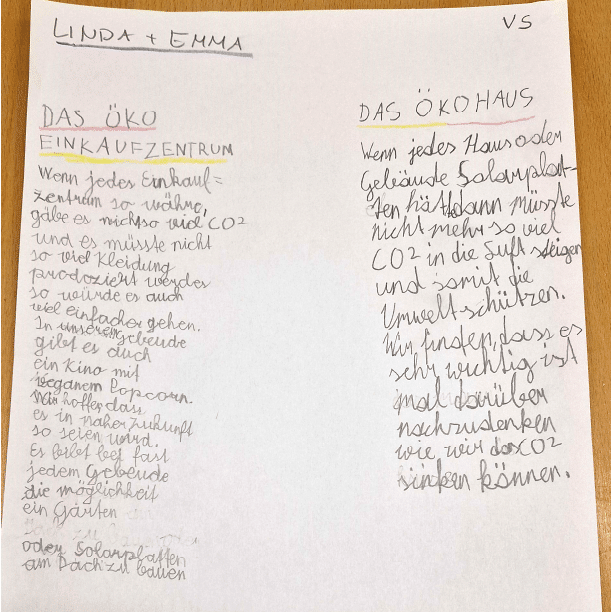 LINDA + EMMA
VS
DAS ÖKO
EINKAUFZENTRUM
Wenn jedes Einkauf=
zentrum so währe,
gäbe es nicht so viel CO2
und es müsste nicht
so viel Kleidung
prodoziert werder
so würde es auch
viel einfacher gehen.
In unserem gebeude
gibt es auch
ein Kino mit
veganem Popcorn.
Wir hoffen dass
es in naher zukunft
so seien wird.
Es bei fast
jedem Gebeude
die möglichkeit
ein Garten
oder Solarplatten
am Dach zu bauen
DAS ÖKOHAUS
Wenn jedes Haus oder
Gebäude Solarplat-
ten hätte dann müsste
nicht mehr so viel
CO2 in die Luft steigen
und somit die
Umwelt schützen.
Wir finden, dass es
sehr wichtig ist
mal darüber
nachzudenken
wie wir das CO2
sinken können.